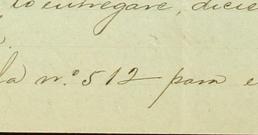 lo entregare, dicie
la n.º 512 para e